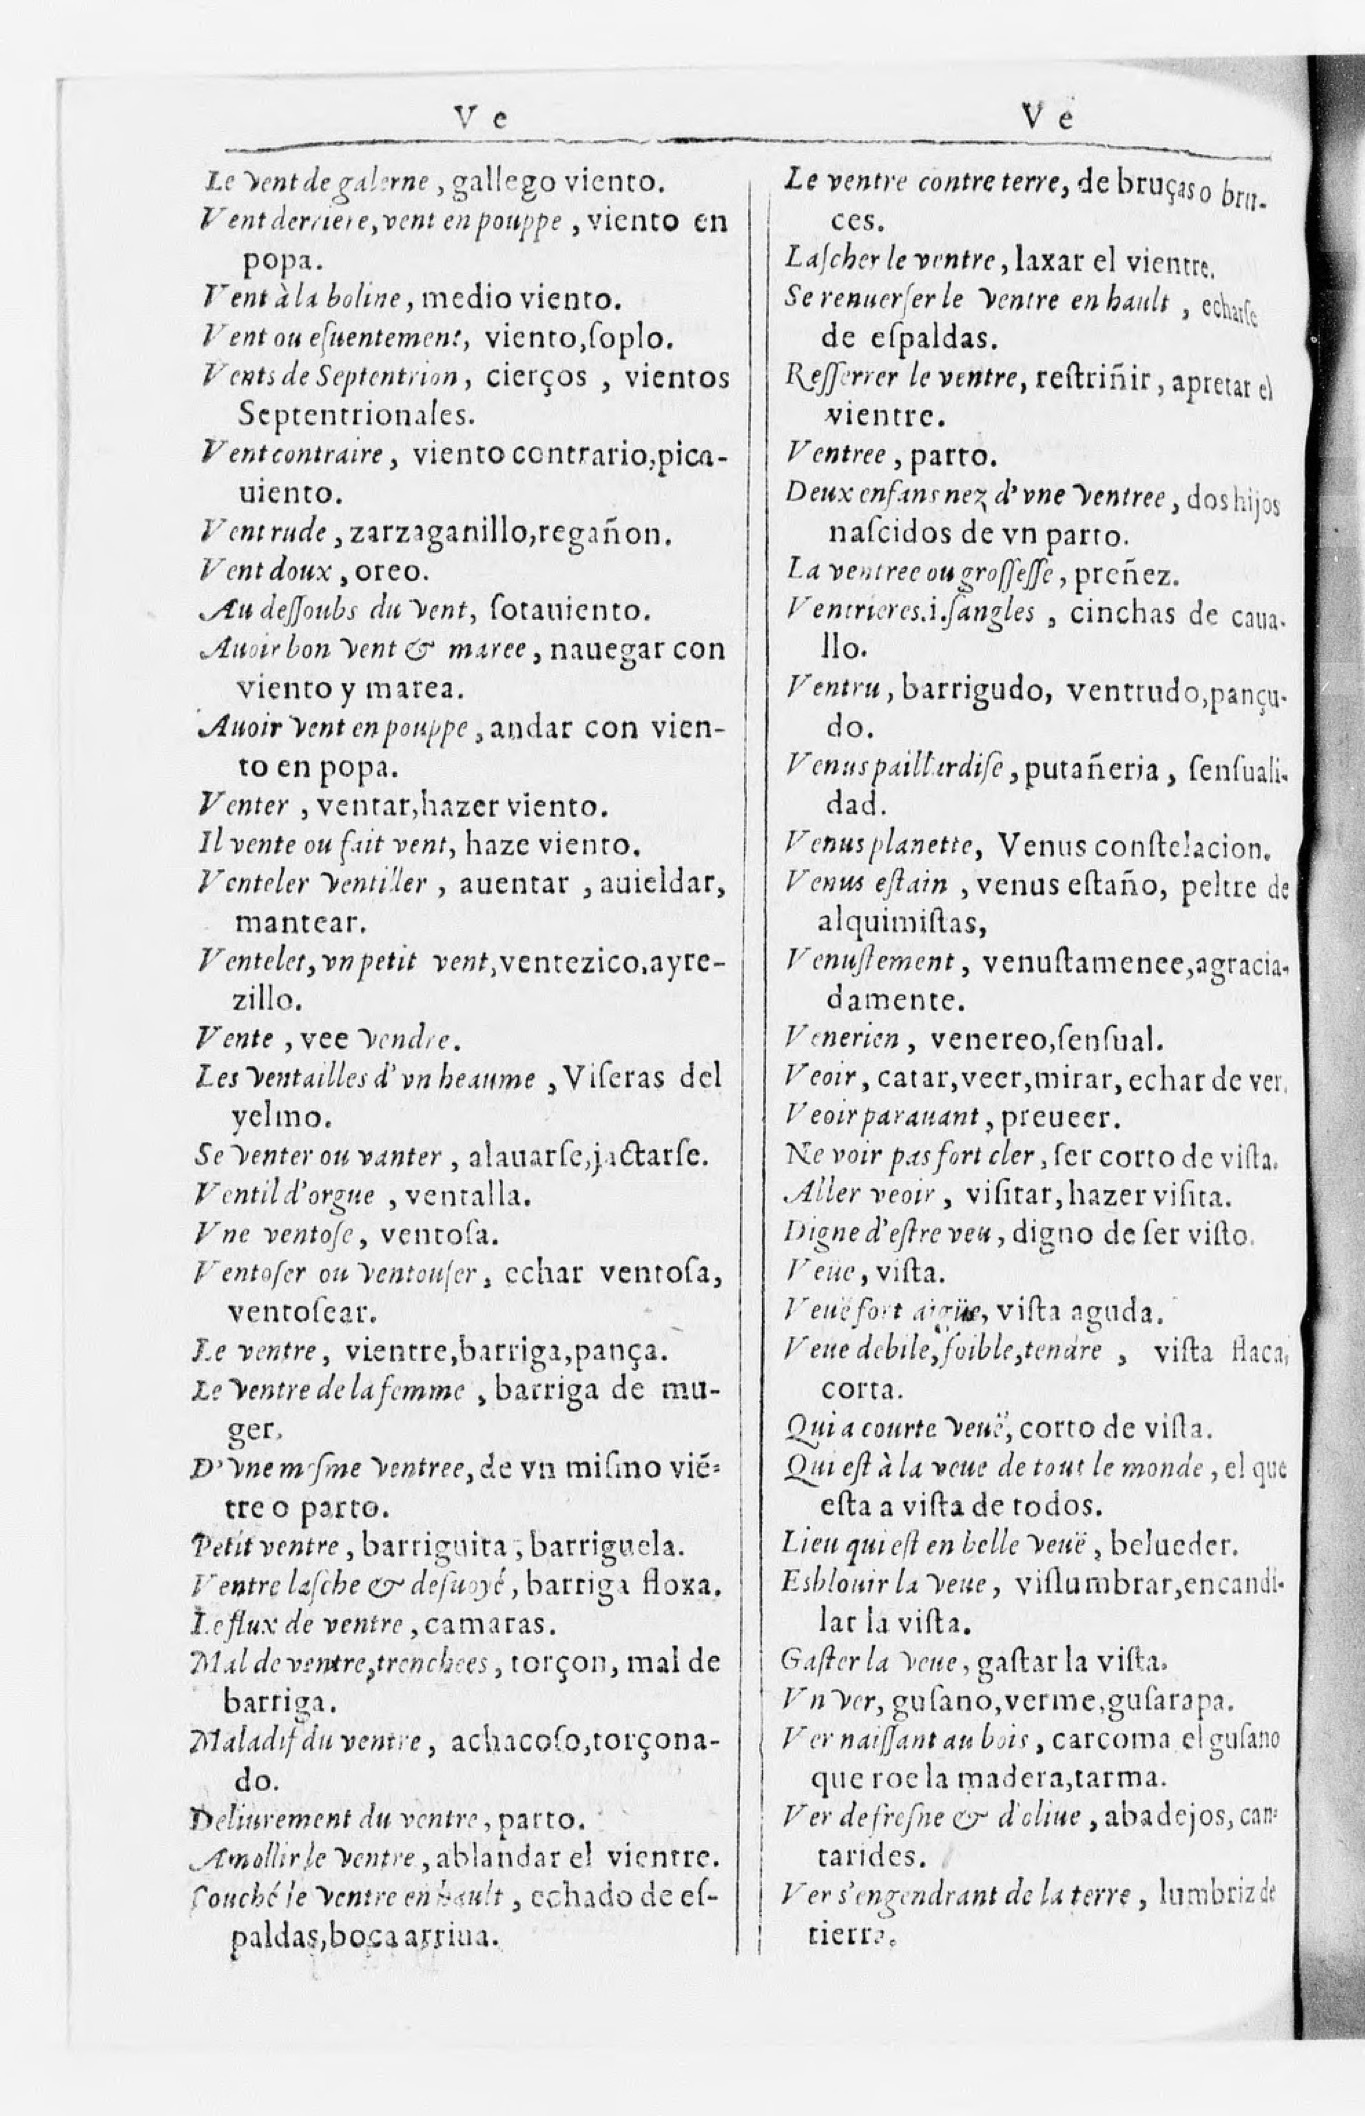 V e
Le vent de galerne, gallego viento.
Vent derriere, vent en pouppe, viento en
popa.
Vent à la boline, medio viento.
Vent ou eſuentement, viento, ſoplo.
Vents de Septentrion, cierços, vientos
Septentrionales.
Vent contraire, viento contrario, pica-
uiento.
Vent rude, zarzaganillo, regañon.
Vent doux, oreo.
Au deſſoubs du vent, ſotauiento.
Auoir bon vent & maree, nauegar con
viento y marea.
Auoir vent en pouppe, andar con vien-
to en popa.
Venter, ventar, hazer viento.
Il vente ou fait vent, haze viento.
Venteler ventiller, auentar, auieldar,
mantear.
Ventelet, vn petit vent, ventezico, ayre-
zillo.
Vente, vee vendre.
Les ventailles d'vn heaume, Viſeras del
yelmo.
Se venter ou vanter, alauarſe, jactarſe.
Ventil d'orgue, ventalla.
Vne ventoſe, ventoſa.
Ventoſer ou ventouſer, echar ventoſa,
ventoſear.
Le ventre, vientre, barriga, pança.
Le ventre de la femme, barriga de mu-
ger.
D'vne meſme ventree, de vn miſmo viē-
tre o parto.
Petit ventre, barriguita, barriguela.
Ventre laſche & deſuoyé, barriga floxa.
Le flux de ventre, camaras.
Mal de ventre, trenchees, torçon, mal de
barriga.
Maladif du ventre, achacoſo, torçona-
do.
Deliurement du ventre, parto.
Amollir le ventre, ablandar el vientre.
Couché le ventre en hault, echado de eſ-
paldas, boca arriua.
V e
Le ventre contre terre, de bruças o bru-
ces.
Laſcher le ventre, laxar el vientre.
Se renuerſer le ventre en hault, echarſe
de eſpaldas.
Reſſerrer le ventre, reſtriñir, apretar el
vientre.
Ventree, parto.
Deux enfans nez d'vne ventree, dos hijos
naſcidos de vn parto.
La ventree ou groſſeſſe, preñez.
Ventrieres.i.ſangles, cinchas de caua-
llo.
Ventru, barrigudo, ventrudo, pançu-
do.
Venus paillardiſe, putañeria, ſenſuali-
dad.
Venus planette, Venus conſtelacion.
Venus eſtain, venus eſtaño, peltre de
alquimiſtas,
Venuſtement, venuſtamenee, agracia-
damente.
Venerien, venereo, ſenſual.
Veoir, catar, veer, mirar, echar de ver.
Veoir parauant, preueer.
Ne voir pas fort cler, ſer corto de viſta.
Aller veoir, viſitar, hazer viſita.
Digne d'eſtre veu, digno de ſer viſto.
Veüe, viſta.
Veuë fort aigüe, viſta aguda.
Veue debile, foible, tendre, viſta flaca,
corta.
Qui a courte veuë, corto de viſta.
Qui eſt à la veue de tout le monde, el que
eſta a viſta de todos.
Lieu qui eſt en belle veuë, belueder.
Esblouir la veue, viſlumbrar, encandi-
lar la viſta.
Gaſter la veue, gaſtar la viſta.
Vn ver, guſano, verme, guſarapa.
Ver naiſſant au bois, carcoma el guſano
que roe la madera, tarma.
Ver de freſne & d'oliue, abadejos, can-
tarides.
Ver s'engendrant de la terre, lumbriz de
tierra.